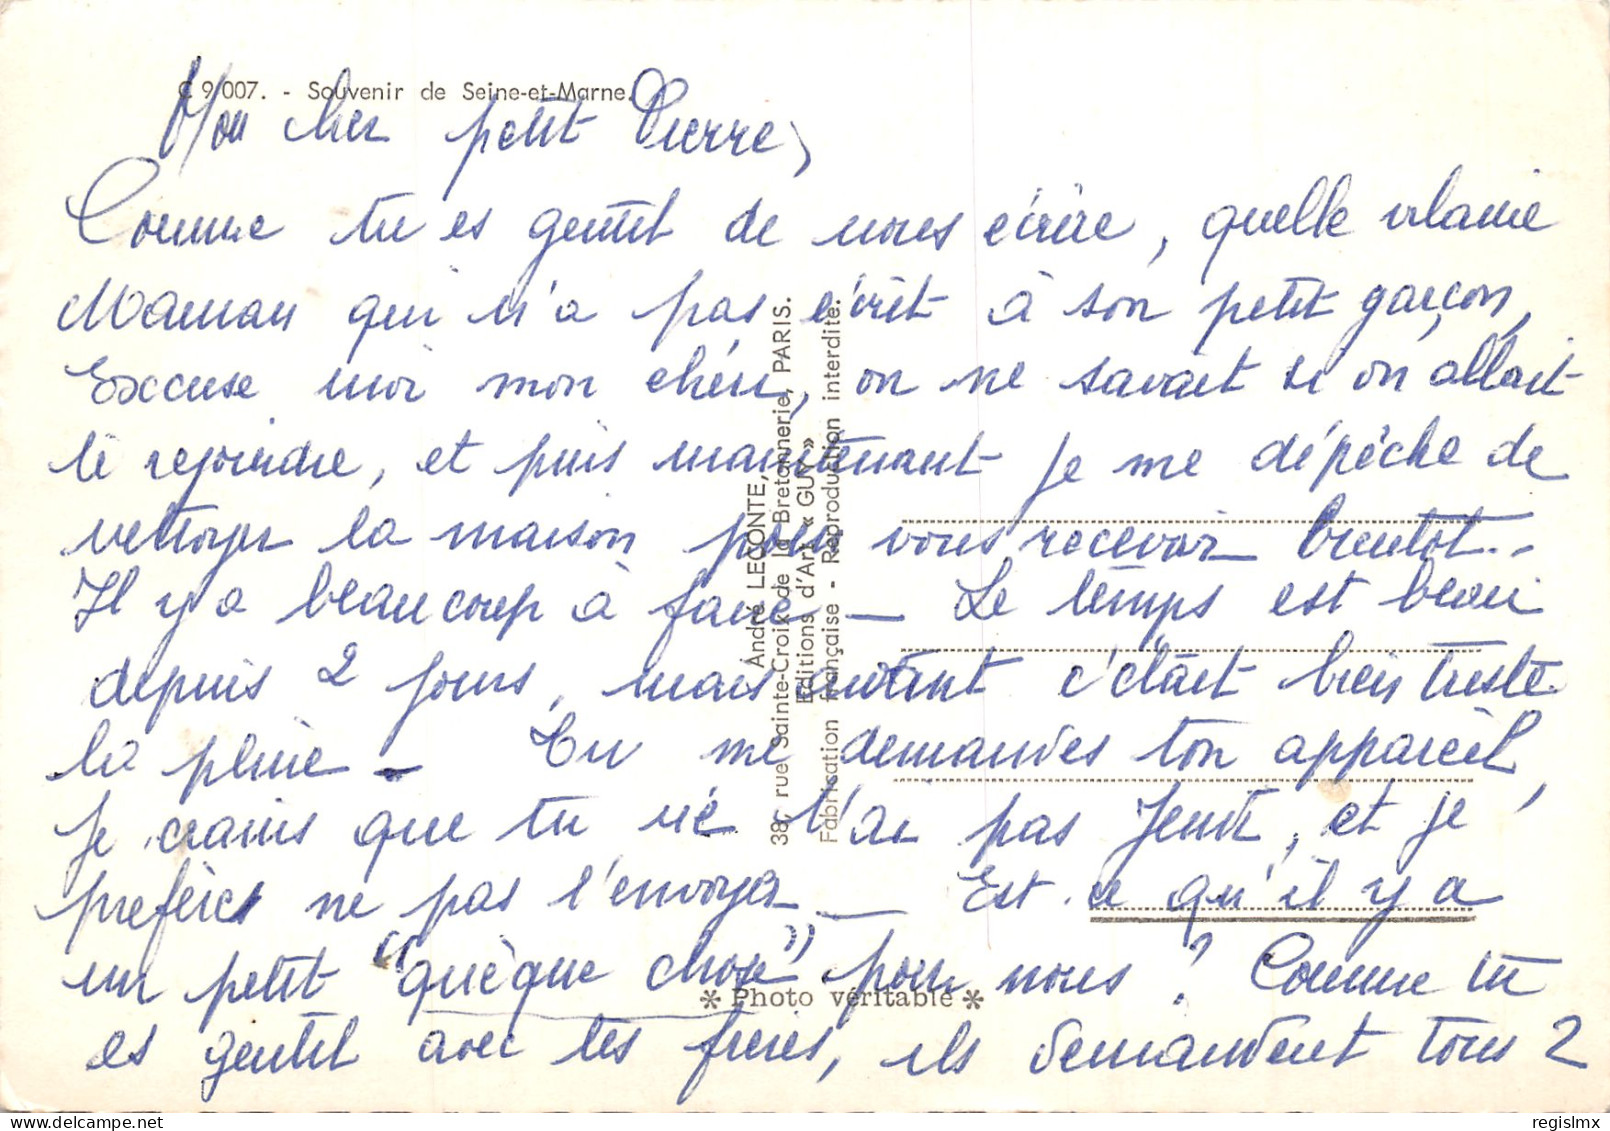 C 9/007. - Souvenir de Seine-et-Marne.
Mon cher petit Pierre,
Comme tu es gentil de nous écrire, quelle vilaine
Maman qui n'a pas écrit à son petit garçon,
Excuse moi mon chéri, on ne savait si on allait
te rejoindre, et puis maintenant je me dépêche de
nettoyer la maison pour vous recevoir bientôt..
Il y a beaucoup à faire — Le temps est beau
depuis 2 jours, mais avant c'était bien triste
la pluie — Tu me demandes ton appareil,
je crains que tu ne l'ai pas Jeudi, et je
préfère ne pas l'envoyer — Est-ce qu'il y a
un petit "quèque chose" pour nous ? Comme tu
es gentil avec tes frères, ils demandent tous 2
André LECONTE,
38, rue Sainte-Croix de la Bretonnerie, PARIS.
Editions d'Art « GUY »
Fabrication française - Reproduction interdite.
* Photo véritable *
regislmx